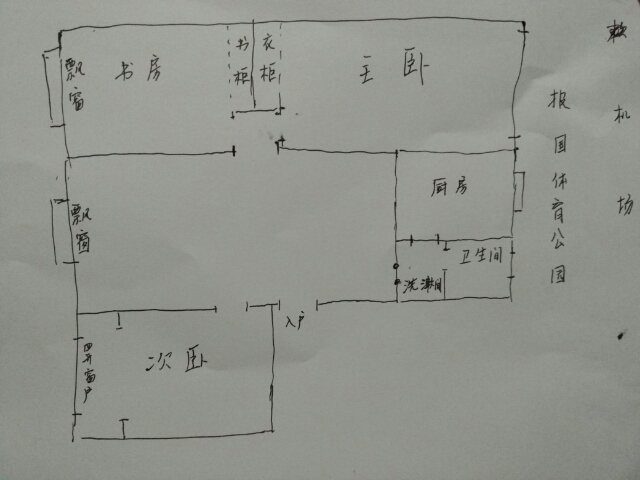 书房
书柜
衣柜
主卧
飘窗
飘窗
厨房
卫生间
洗漱间
入户
次卧
四开窗户
报国体育公园
机场